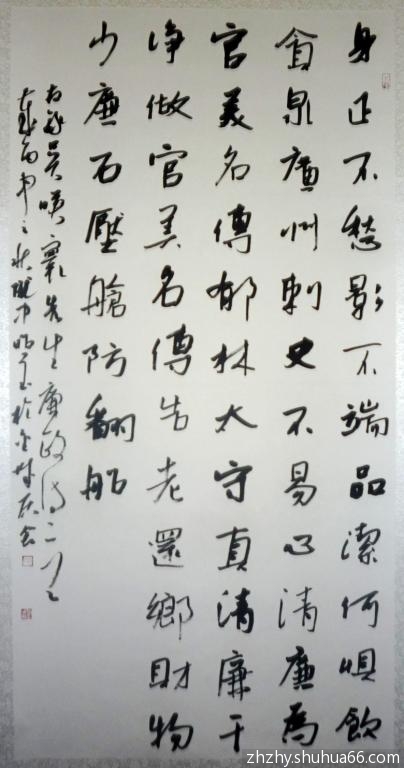 身正不愁影不端品潔何惧飲
貪泉廣州刺史不易心清廉為
官美名傳郁林太守真清廉干
净做官美名傳告老還鄉財物
少廉石壓艙防翻船
吴暎寰先生廉政诗二首
丙申之秋
zhzhy.shuhua66.com